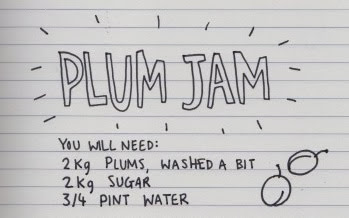 PLUM JAM
YOU WILL NEED:
2Kg PLUMS, WASHED A BIT
2Kg SUGAR
3/4 PINT WATER